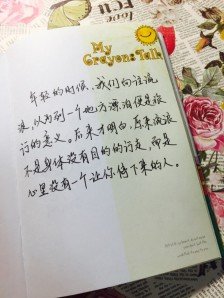 My
Crayons Talk
年轻的时候，我们向往流
浪，以为到一个地方漂泊便是旅
行的意义。后来才明白，原来流浪
不是身体没有目的的行走，而是
心里没有一个让你停下来的人。